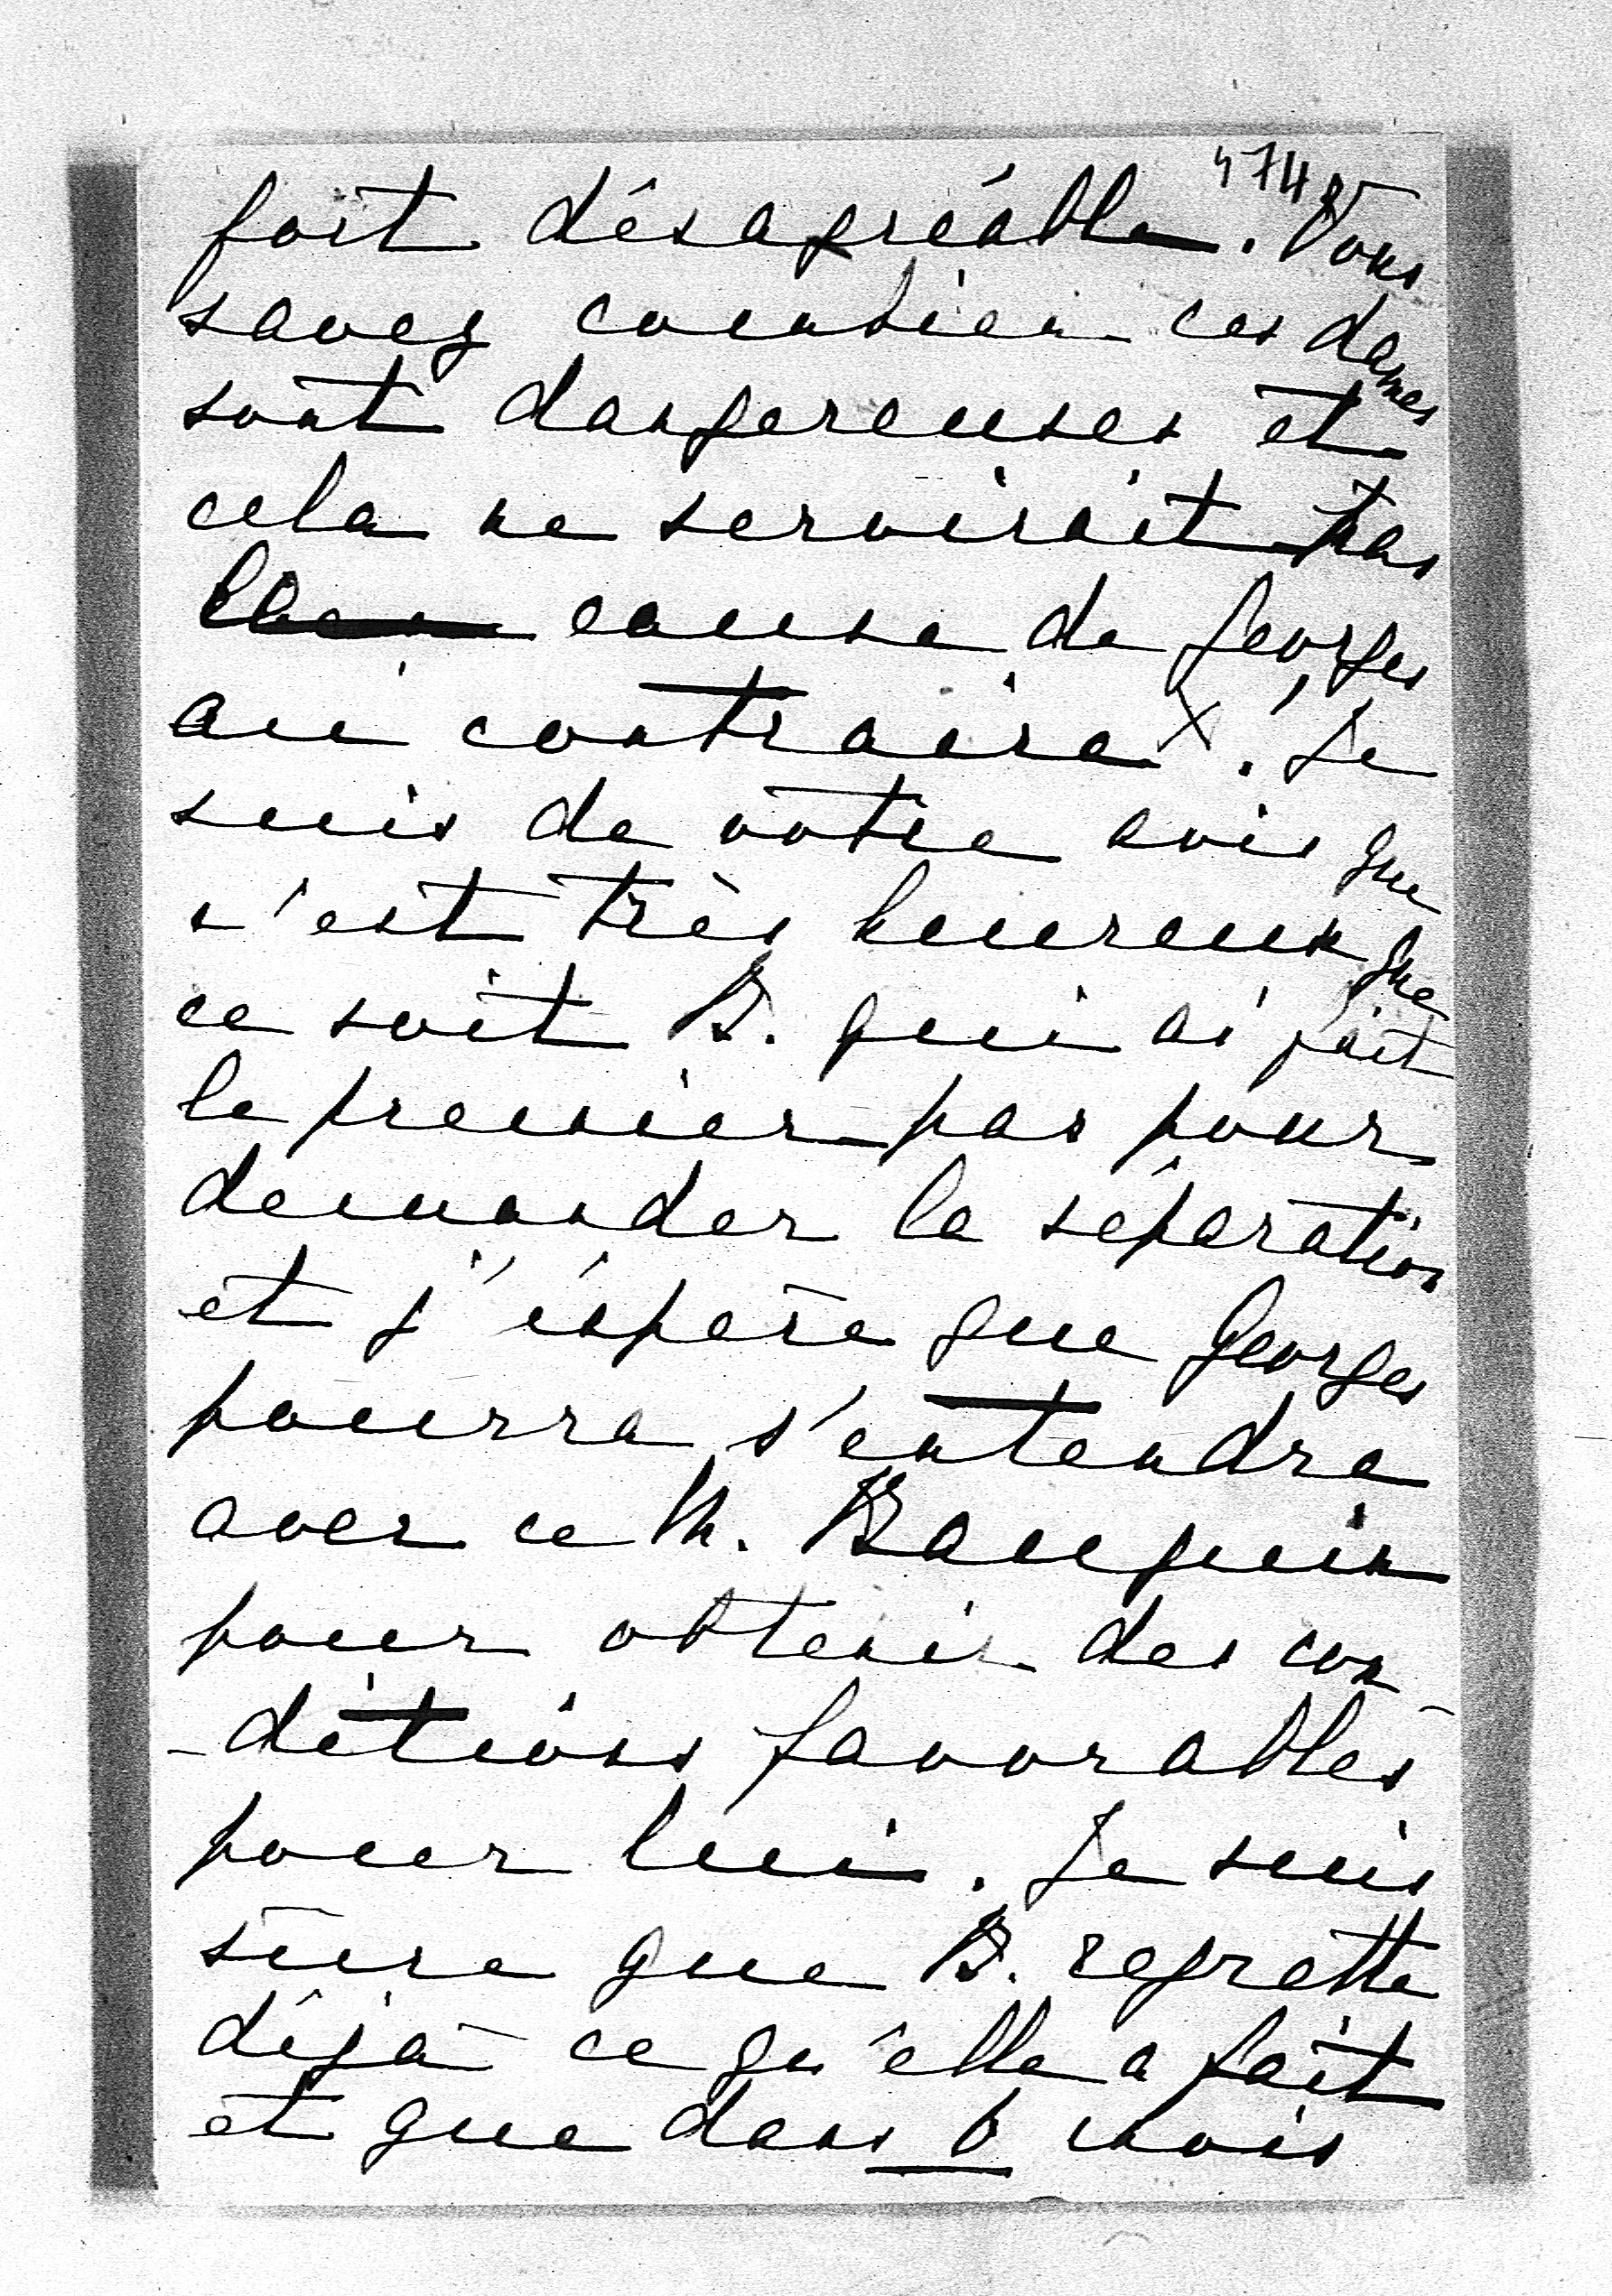 474
fort désagréable. Vous
savez combien ces dames
sont dangereuses et
cela ne servirait pas
cause de Georges
au contraire X. Je
suis de votre avis que
c'est très heureux que
ce soit B. qui ai fait
le premier pas pour
demander la séparation
et j'éspère que Georges
pourra s'entendre
avec ce M. Bauquin
pour obtenir des con-
-ditions favorables
pour lui. Je suis
sûre que B. regrette
déjà ce qu'elle a fait
et que dans 6 mois